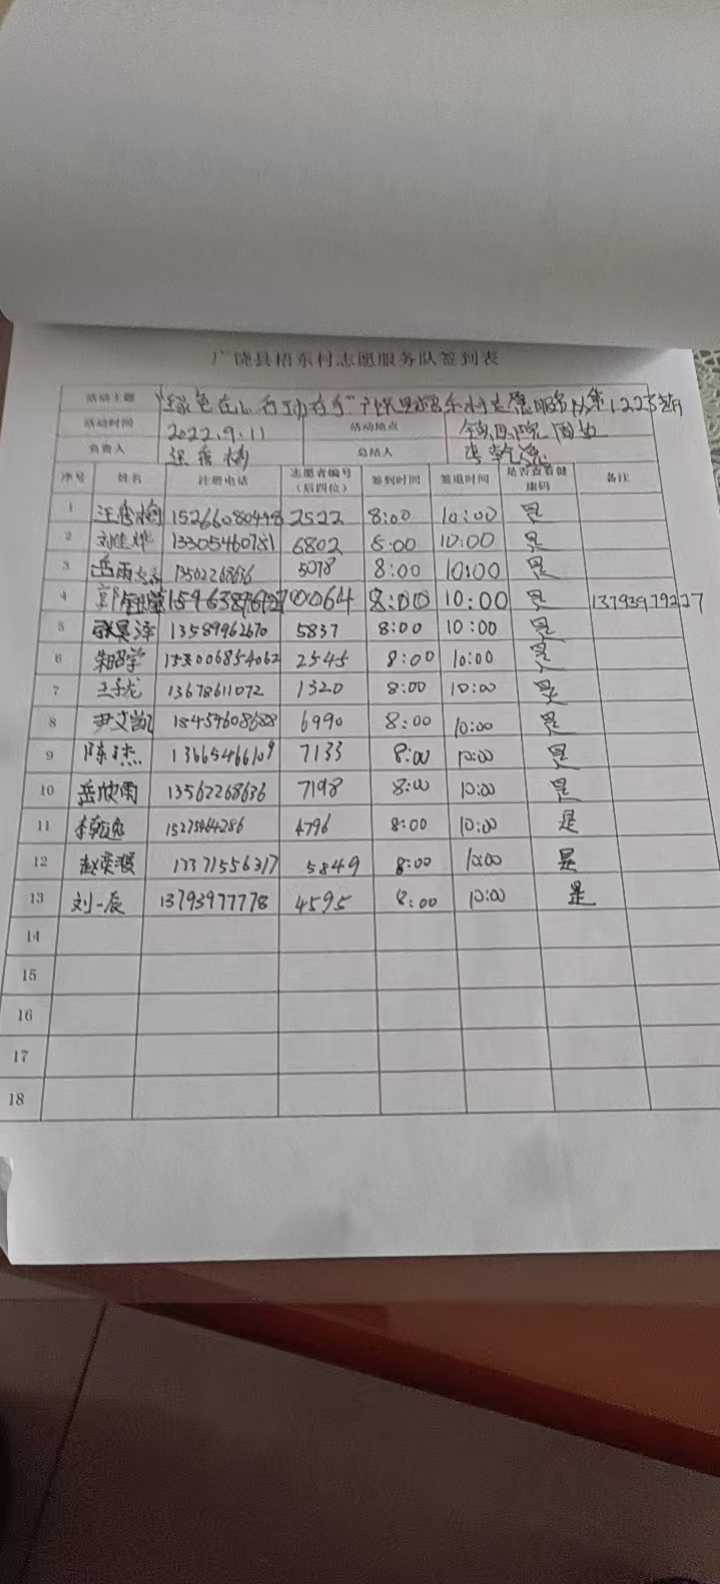 广饶县梧东村志愿服务队签到表
活动主题 "绿色在心 行动在手"广饶县梧东村志愿服务队第1223期
活动时间 2022.9.11 活动地点 镇医院周边
负责人 汪秀梅 总结人 李乾逸
序号 姓名 注册电话 志愿者编号（后四位） 签到时间 签退时间 是否查看健康码 备注
1 汪秀梅 15266080498 2522 8:00 10:00 是
2 13305460781 6802 8:00 10:00 是
3 岳雨 13502268636 5078 8:00 10:00 是
4 郭 0064 8:00 10:00 是 13793979227
5 张昊泽 13589962670 5837 8:00 10:00 是
6 2545 8:00 10:00 是
7 王子龙 13678611072 1320 8:00 10:00 是
8 尹文凯 18459608688 6990 8:00 10:00 是
9 陈杰 13665466109 7133 8:00 10:00 是
10 岳欣雨 13562268636 7198 8:00 10:00 是
11 李乾逸 15275464286 4796 8:00 10:00 是
12 赵奕媛 17371556317 5849 8:00 10:00 是
13 刘一辰 13793977778 4595 8:00 10:00 是
14
15
16
17
18